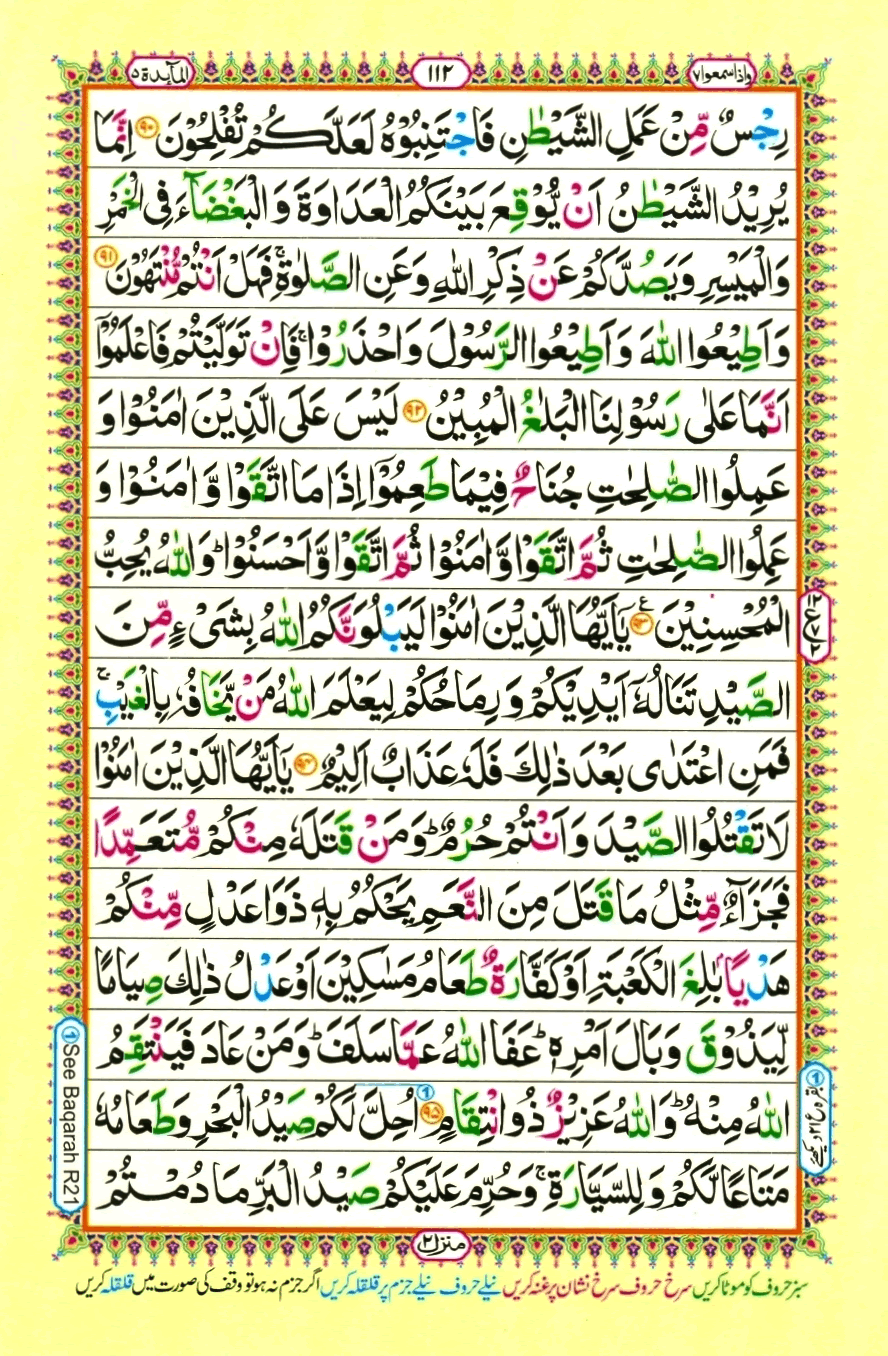 المآئدة ۵
۱۱۲
واذاسمعوا ۷
رِجْسٌ مِّنْ عَمَلِ الشَّيْطٰنِ فَاجْتَنِبُوْهُ لَعَلَّكُمْ تُفْلِحُوْنَ ۹۰ اِنَّمَا
يُرِيْدُ الشَّيْطٰنُ اَنْ يُّوْقِعَ بَيْنَكُمُ الْعَدَاوَةَ وَ الْبَغْضَآءَ فِی الْخَمْرِ
وَالْمَيْسِرِ وَيَصُدَّكُمْ عَنْ ذِكْرِ اللّٰهِ وَعَنِ الصَّلٰوةِ ۚ فَهَلْ اَنْتُمْ مُّنْتَهُوْنَ ۹۱
وَاَطِيْعُوا اللّٰهَ وَاَطِيْعُوا الرَّسُوْلَ وَاحْذَرُوْا ۚ فَاِنْ تَوَلَّيْتُمْ فَاعْلَمُوْۤا
اَنَّمَا عَلٰى رَسُوْلِنَا الْبَلٰغُ الْمُبِيْنُ ۹۲ لَيْسَ عَلَى الَّذِيْنَ اٰمَنُوْا وَ
عَمِلُوا الصّٰلِحٰتِ جُنَاحٌ فِيْمَا طَعِمُوْۤا اِذَا مَا اتَّقَوْا وَّاٰمَنُوْا وَ
عَمِلُوا الصّٰلِحٰتِ ثُمَّ اتَّقَوْا وَّاٰمَنُوْا ثُمَّ اتَّقَوْا وَّاَحْسَنُوْا ؕ وَاللّٰهُ يُحِبُّ
الْمُحْسِنِيْنَ ۹۳ ع يٰۤاَيُّهَا الَّذِيْنَ اٰمَنُوْا لَيَبْلُوَنَّكُمُ اللّٰهُ بِشَیْءٍ مِّنَ
الصَّيْدِ تَنَالُهٗۤ اَيْدِيْكُمْ وَرِمَاحُكُمْ لِيَعْلَمَ اللّٰهُ مَنْ يَّخَافُهٗ بِالْغَيْبِ ۚ
فَمَنِ اعْتَدٰى بَعْدَ ذٰلِكَ فَلَهٗ عَذَابٌ اَلِيْمٌ ۹۴ يٰۤاَيُّهَا الَّذِيْنَ اٰمَنُوْا
لَا تَقْتُلُوا الصَّيْدَ وَاَنْتُمْ حُرُمٌ ؕ وَمَنْ قَتَلَهٗ مِنْكُمْ مُّتَعَمِّدًا
فَجَزَآءٌ مِّثْلُ مَا قَتَلَ مِنَ النَّعَمِ يَحْكُمُ بِهٖ ذَوَا عَدْلٍ مِّنْكُمْ
هَدْيًۢا بٰلِغَ الْكَعْبَةِ اَوْ كَفَّارَةٌ طَعَامُ مَسٰكِيْنَ اَوْ عَدْلُ ذٰلِكَ صِيَامًا
لِّيَذُوْقَ وَبَالَ اَمْرِهٖ ؕ عَفَا اللّٰهُ عَمَّا سَلَفَ ؕ وَمَنْ عَادَ فَيَنْتَقِمُ
اللّٰهُ مِنْهُ ؕ وَاللّٰهُ عَزِيْزٌ ذُو انْتِقَامٍ ۹۵ ① اُحِلَّ لَكُمْ صَيْدُ الْبَحْرِ وَطَعَامُهٗ
مَتَاعًا لَّكُمْ وَلِلسَّيَّارَةِ ۚ وَحُرِّمَ عَلَيْكُمْ صَيْدُ الْبَرِّ مَا دُمْتُمْ
① See Baqarah R21
منزل ۲
سبز حروف کو موٹا کریں سرخ حروف سرخ نشان پر غنہ کریں نیلے حروف نیلے جزم پر قلقلہ کریں اگر جزم نہ ہو تو وقف کی صورت میں قلقلہ کریں